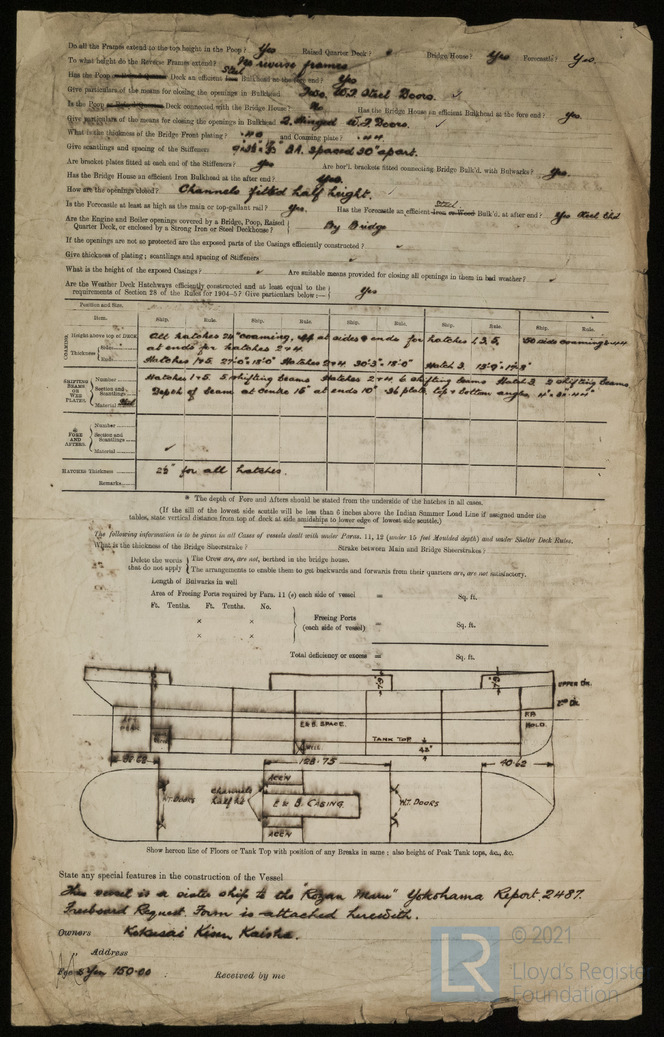 Do all the Frames extend to the top height in the Poop? Yes Raised Quarter Deck? Bridge House? Yes Forecastle? Yes.
To what height do the Reverse Frames extend? No reverse frames
Has the Poop Deck an efficient Steel Bulkhead at the fore end? Yes
Give particulars of the means for closing the openings in Bulkhead Two W.T. Steel Doors. ✓
Is the Poop or Raised Quarter Deck connected with the Bridge House? No Has the Bridge House an efficient Bulkhead at the fore end? Yes.
Give particulars of the means for closing the openings in Bulkhead 2 Hinged W.T. Doors. ✓
What is the thickness of the Bridge Front plating? .40 and Coaming plate? .44
Give scantlings and spacing of the Stiffeners B.A. spaced 30" apart.
Are bracket plates fitted at each end of the Stiffeners? Yes Are hor'l. brackets fitted connecting Bridge Bulk'd. with Bulwarks? Yes.
Has the Bridge House an efficient Iron Bulkhead at the after end? Yes.
How are the openings closed? Channels fitted half height.
Is the Forecastle at least as high as the main or top-gallant rail? Yes. Has the Forecastle an efficient Iron or Wood Steel Bulk'd. at after end? Yes Steel Bhd
Are the Engine and Boiler openings covered by a Bridge, Poop, Raised
Quarter Deck, or enclosed by a Strong Iron or Steel Deckhouse? By Bridge
If the openings are not so protected are the exposed parts of the Casings efficiently constructed? ✓
Give thickness of plating; scantlings and spacing of Stiffeners ✓
What is the height of the exposed Casings? ✓ Are suitable means provided for closing all openings in them in bad weather? ✓
Are the Weather Deck Hatchways efficiently constructed and at least equal to the
requirements of Section 28 of the Rules for 1904-5? Give particulars below:— Yes
Position and Size.
Item. Ship. Rule. Ship. Rule. Ship. Rule. Ship. Rule. Ship. Rule.
COAMING Height above top of Deck All hatches 24" coaming, .44 at sides & ends for hatches 1.3.5, .50 side coaming & .44
Thickness Sides Ends at ends for hatches 2 & 4.
Hatches 1 & 5 27'-0" × 18'-0" Hatches 2 & 4 30'-3" × 18'-0" Hatch 3
SHIFTING BEAMS OR WEB PLATES. Number Hatches 1 & 5 5 shifting beams Hatches 2 & 4 6 shifting beams Hatch 3 2 shifting beams
Section and Scantlings Depth of beam at centre 15" at ends 10" .36 plate top & bottom angles
Material Steel
* FORE AND AFTERS. Number
Section and Scantlings
Material ✓
HATCHES Thickness 2½" for all hatches.
Remarks
* The depth of Fore and Afters should be stated from the underside of the hatches in all cases.
(If the sill of the lowest side scuttle will be less than 6 inches above the Indian Summer Load Line if assigned under the
tables, state vertical distance from top of deck at side amidships to lower edge of lowest side scuttle.)
The following information is to be given in all Cases of vessels dealt with under Paras. 11, 12 (under 15 feet Moulded depth) and under Shelter Deck Rules.
What is the thickness of the Bridge Sheerstrake? Strake between Main and Bridge Sheerstrakes?
Delete the words that do not apply The Crew are, are not, berthed in the bridge house.
The arrangements to enable them to get backwards and forwards from their quarters are, are not satisfactory.
Length of Bulwarks in well
Area of Freeing Ports required by Para. 11 (e) each side of vessel = Sq. ft.
Ft. Tenths. Ft. Tenths. No.
× ×
Freeing Ports (each side of vessel) = Sq. ft.
× ×
Total deficiency or excess = Sq. ft.
7'-9" 7'-9" UPPER DK.
2ND DK.
AFT PEAK E & B SPACE. F.P.
HOLD.
TANK TOP
WELL 42"
128·75 40·62
ACC'N
W.T. DOORS Channels half ht E & B. CASING W.T. DOORS
ACC'N
Show hereon line of Floors or Tank Top with position of any Breaks in same; also height of Peak Tank tops, &c., &c.
State any special features in the construction of the Vessel
This vessel is a sister ship to the "Rozan Maru" Yokohama Report 2487.
Freeboard Request Form is attached herewith.
Owners Kokusai Kisen Kaisha.
Address
Fee Yen 150·00 Received by me
© 2021
LR Lloyd's Register
Foundation